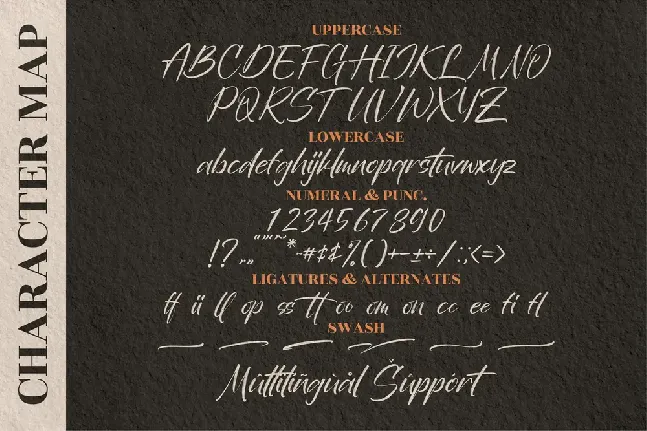 CHARACTER MAP
UPPERCASE
ABCDEFGHIJKLMNO
PQRSTUVWXYZ
LOWERCASE
abcdefghijklmnopqrstuvwxyz
NUMERAL & PUNC.
1234567890
!?,,""''~*-#¢¢%()+-±÷/:;<=>
LIGATURES & ALTERNATES
ff ll op ss tt oo om on cc ee fi fl
SWASH
Múltilingùal Šúppórt